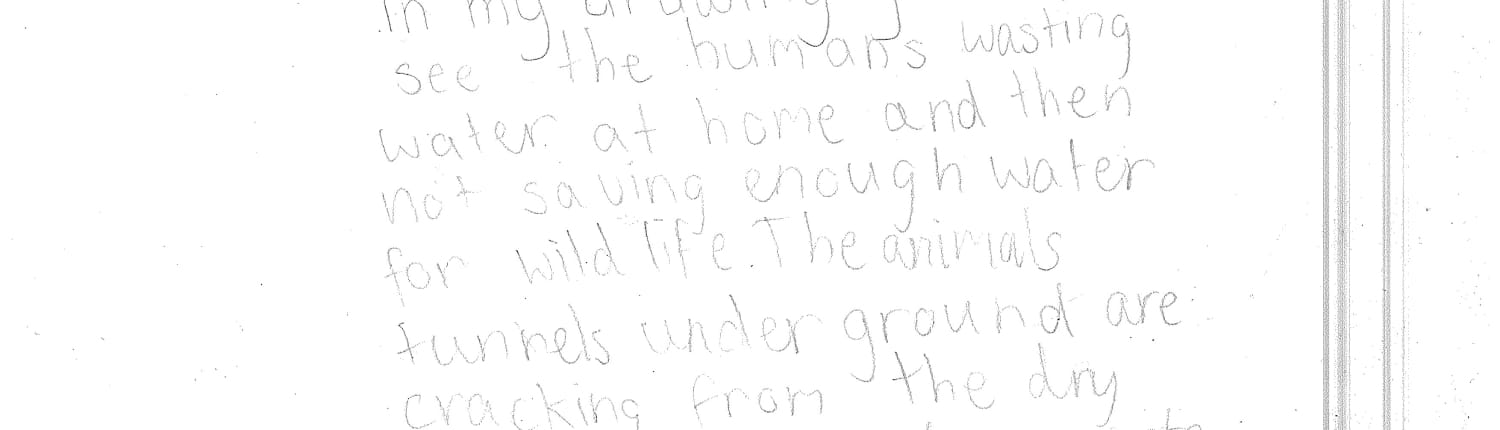 In my drawing
see the humans wasting
water at home and then
not saving enough water
for wild life. The animals
tunnels under ground are
cracking from the dry